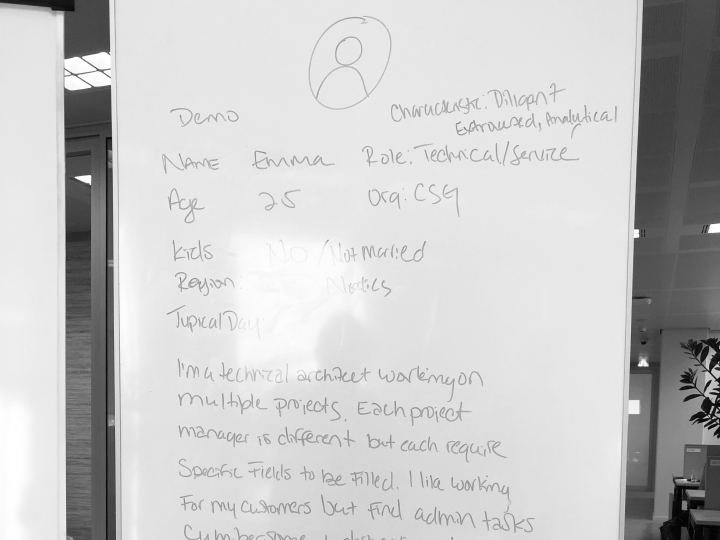 Demo
Characteristic: Diligent
Extroused, Analytical
Name Emma Role: Technical/Service
Age 25 Org: CSG
Kids No / Not married
Region: Nordics
Typical Day
I'm a technical architect working on
multiple projects. Each project
manager is different but each require
Specific Fields to be Filled. I like working
For my customers but Find admin tasks
Cumbersome